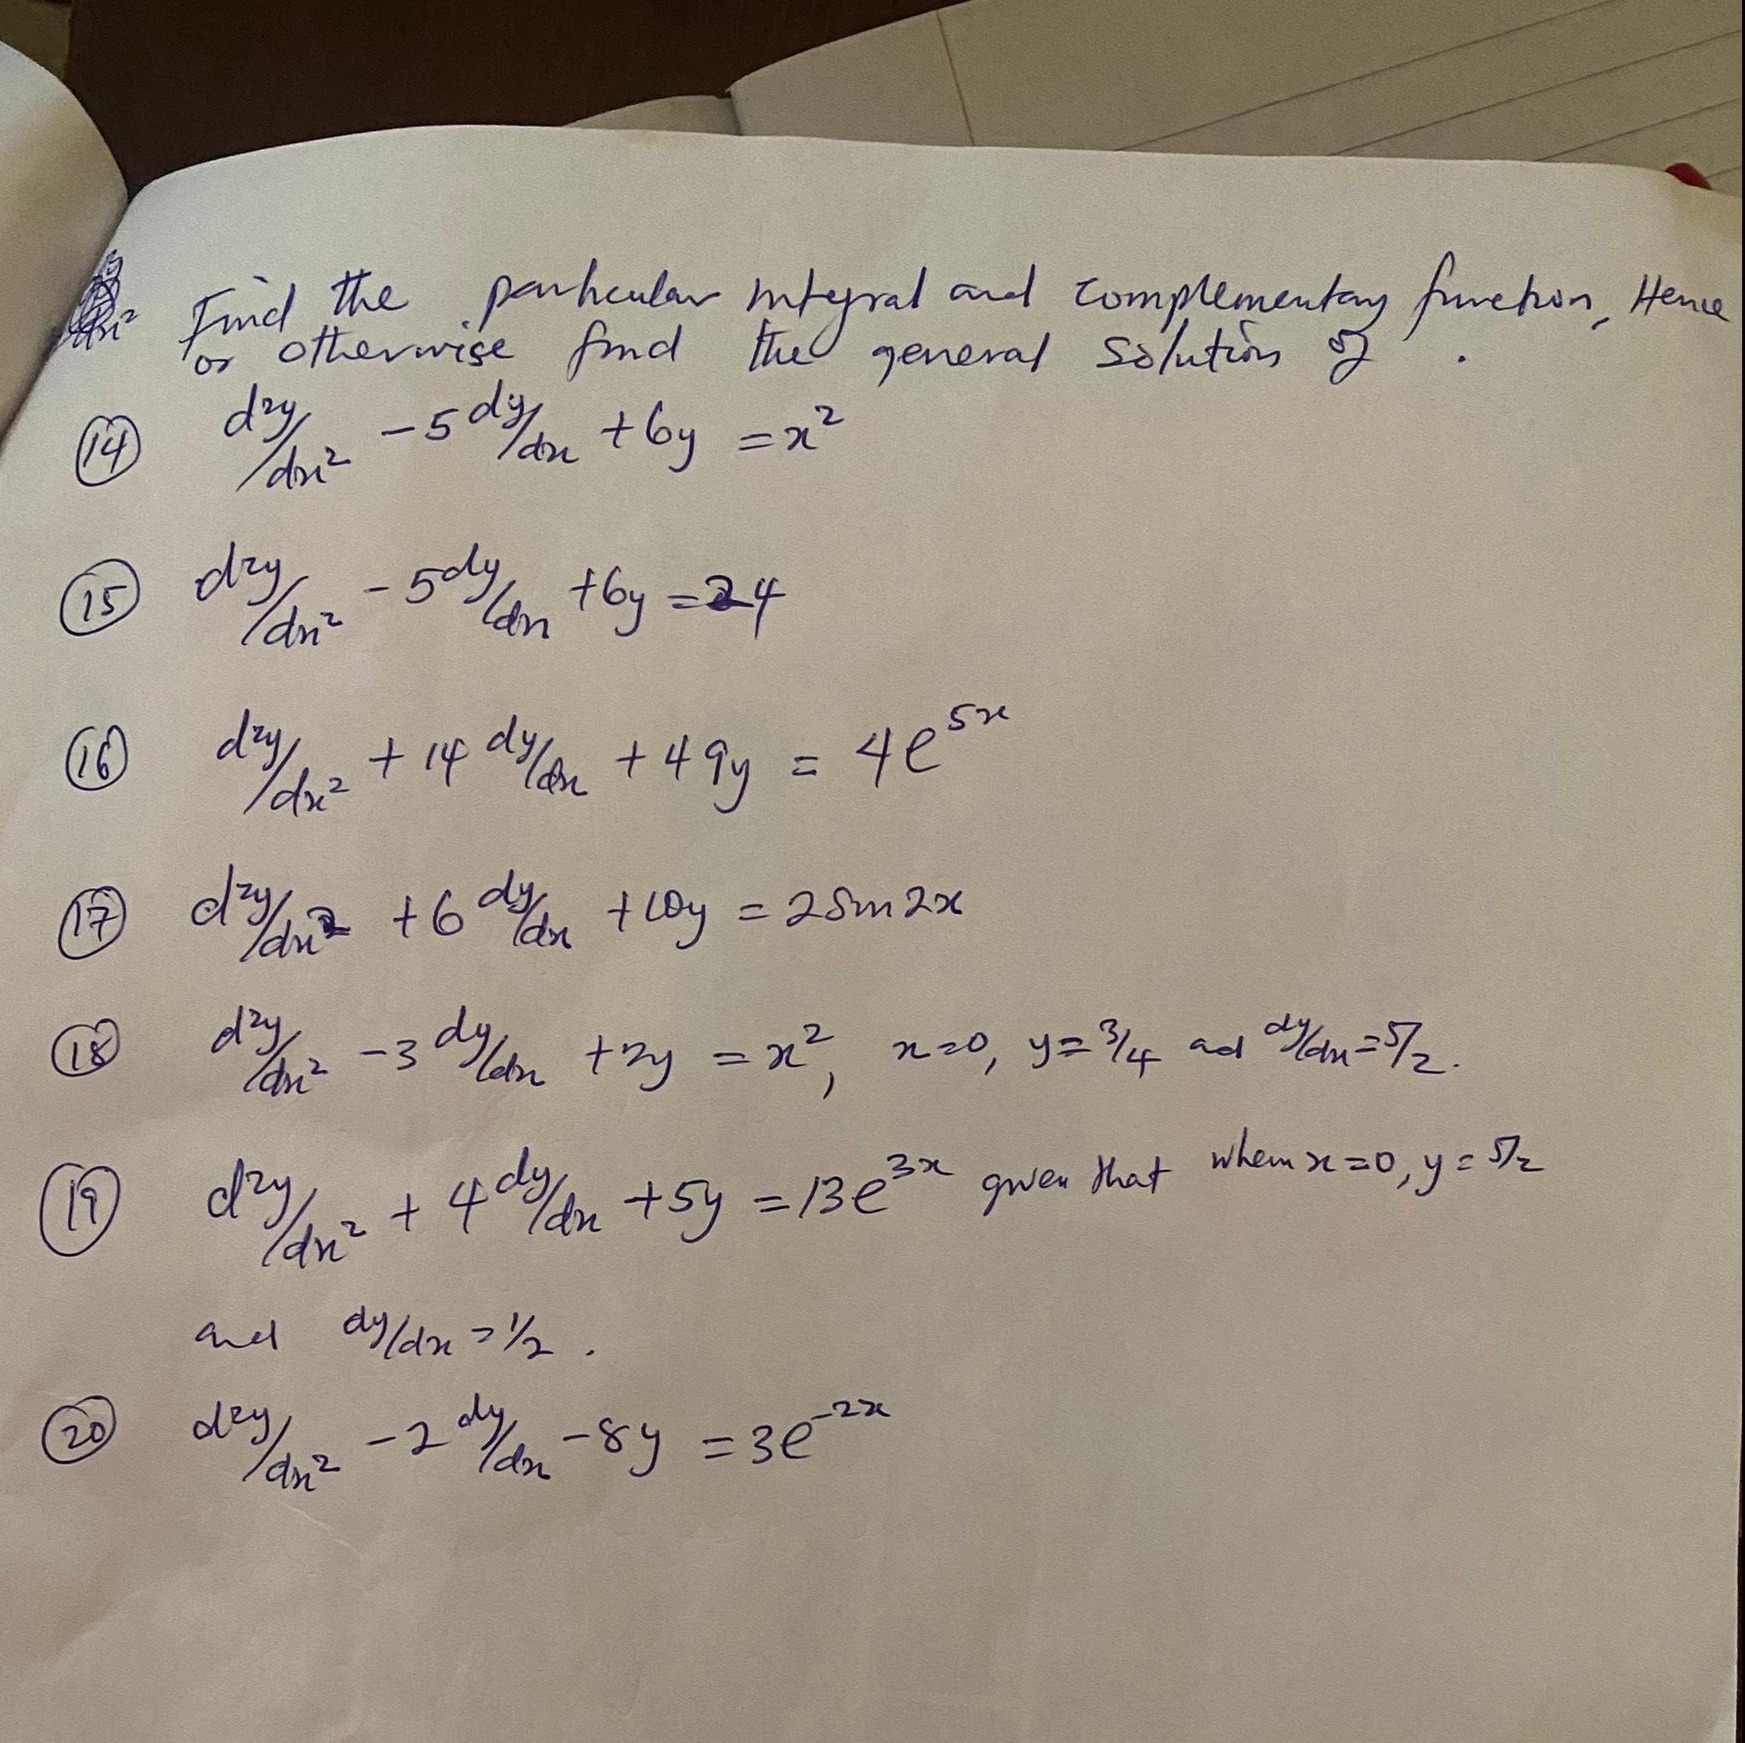 Find the particular integral and complementary function, Hence
or otherwise find the general solution of .
(14) d²y/dx² - 5 dy/dx + 6y = x²
(15) d²y/dx² - 5 dy/dx + 6y = 24
(16) d²y/dx² + 14 dy/dx + 49y = 4e^5x
(17) d²y/dx² + 6 dy/dx + 10y = 2 Sin 2x
(18) d²y/dx² - 3 dy/dx + 2y = x², x=0, y = 3/4 and dy/dx = 5/2.
(19) d²y/dx² + 4 dy/dx + 5y = 13e^3x given that when x=0, y = 5/2
and dy/dx = 1/2 .
(20) d²y/dx² - 2 dy/dx - 8y = 3e^-2x